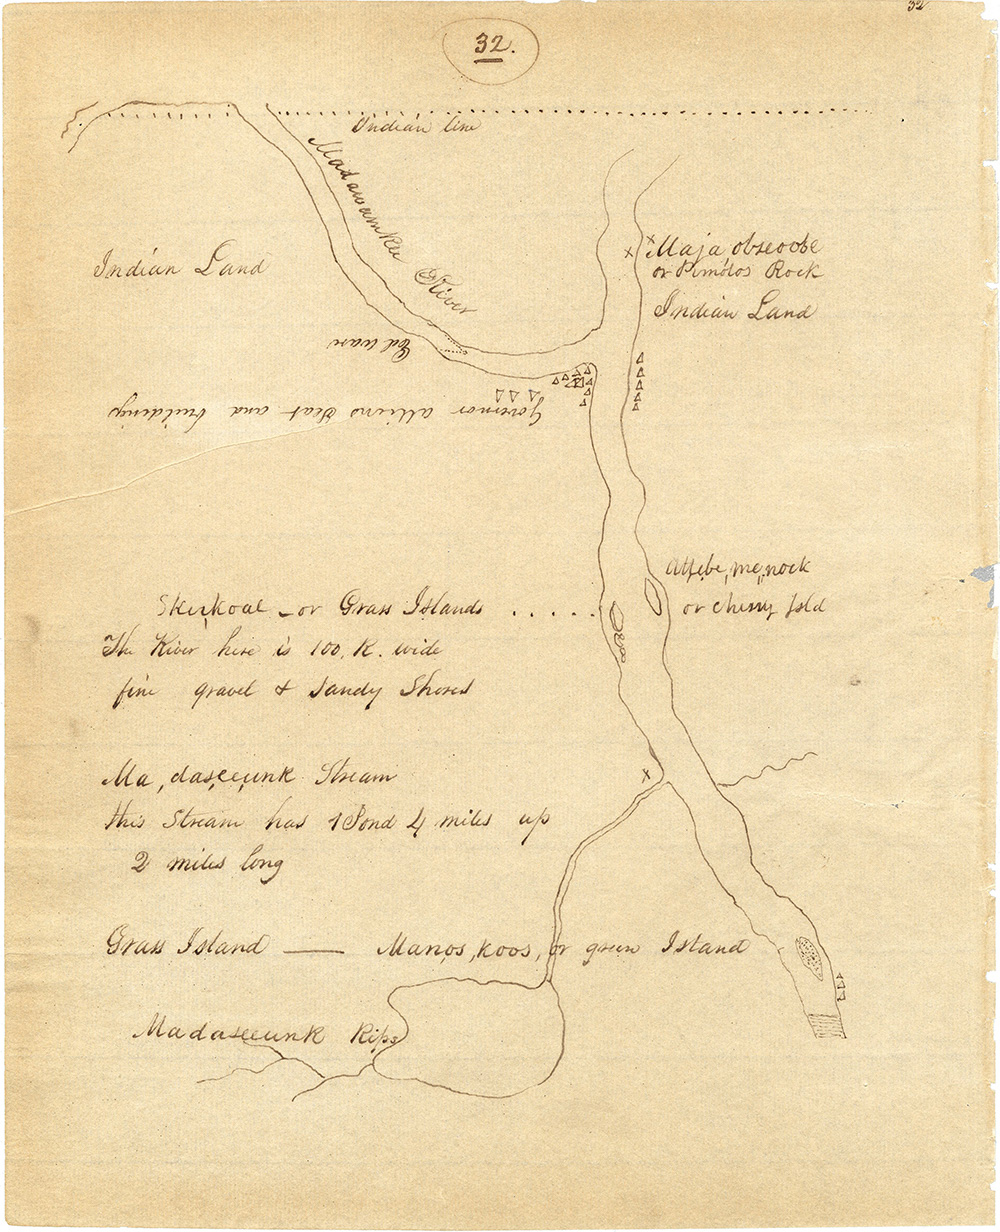 32
32.
Indian line
Madawamkee River
Indian Land
Maja obscoobe
or Pimolos Rock
Indian Land
Governor attiens Seat and buildings
Skeikoal - or Grass Islands . . . . .
The River here is 100, R. wide
fine gravel & Sandy Shores
or cherry Isld
Ma,daseeunk Stream
this Stream has 1 Pond 4 miles up
2 miles long
Grass Island — Manos,koos, or green Island
Madaseeunk Rips